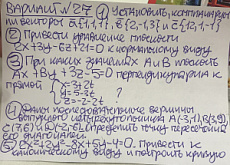 Вариант №27 ① Установить, компланарны
ли векторы a̅{1,1,1}, B̅{2,-1,3} и c̅{2,-1,-1}
② Привести уравнение плоскости
2x+3y-6z+21=0 к нормальному виду
③ При каких значениях А и В плоскость
Ax+By+3z-5=0 перпендикулярна к
прямой { x=3+2t
y=5-3t ?
z=-2-2t
④ Даны последовательные вершины
выпуклого четырехугольника A(-3,1), B(3,9),
C(7,6) и D(-2,-6). Определить точку пересечения
его диагоналей
⑤ 2x²-12y²-8x+5y-4=0. Привести к
каноническому виду и построить кривую